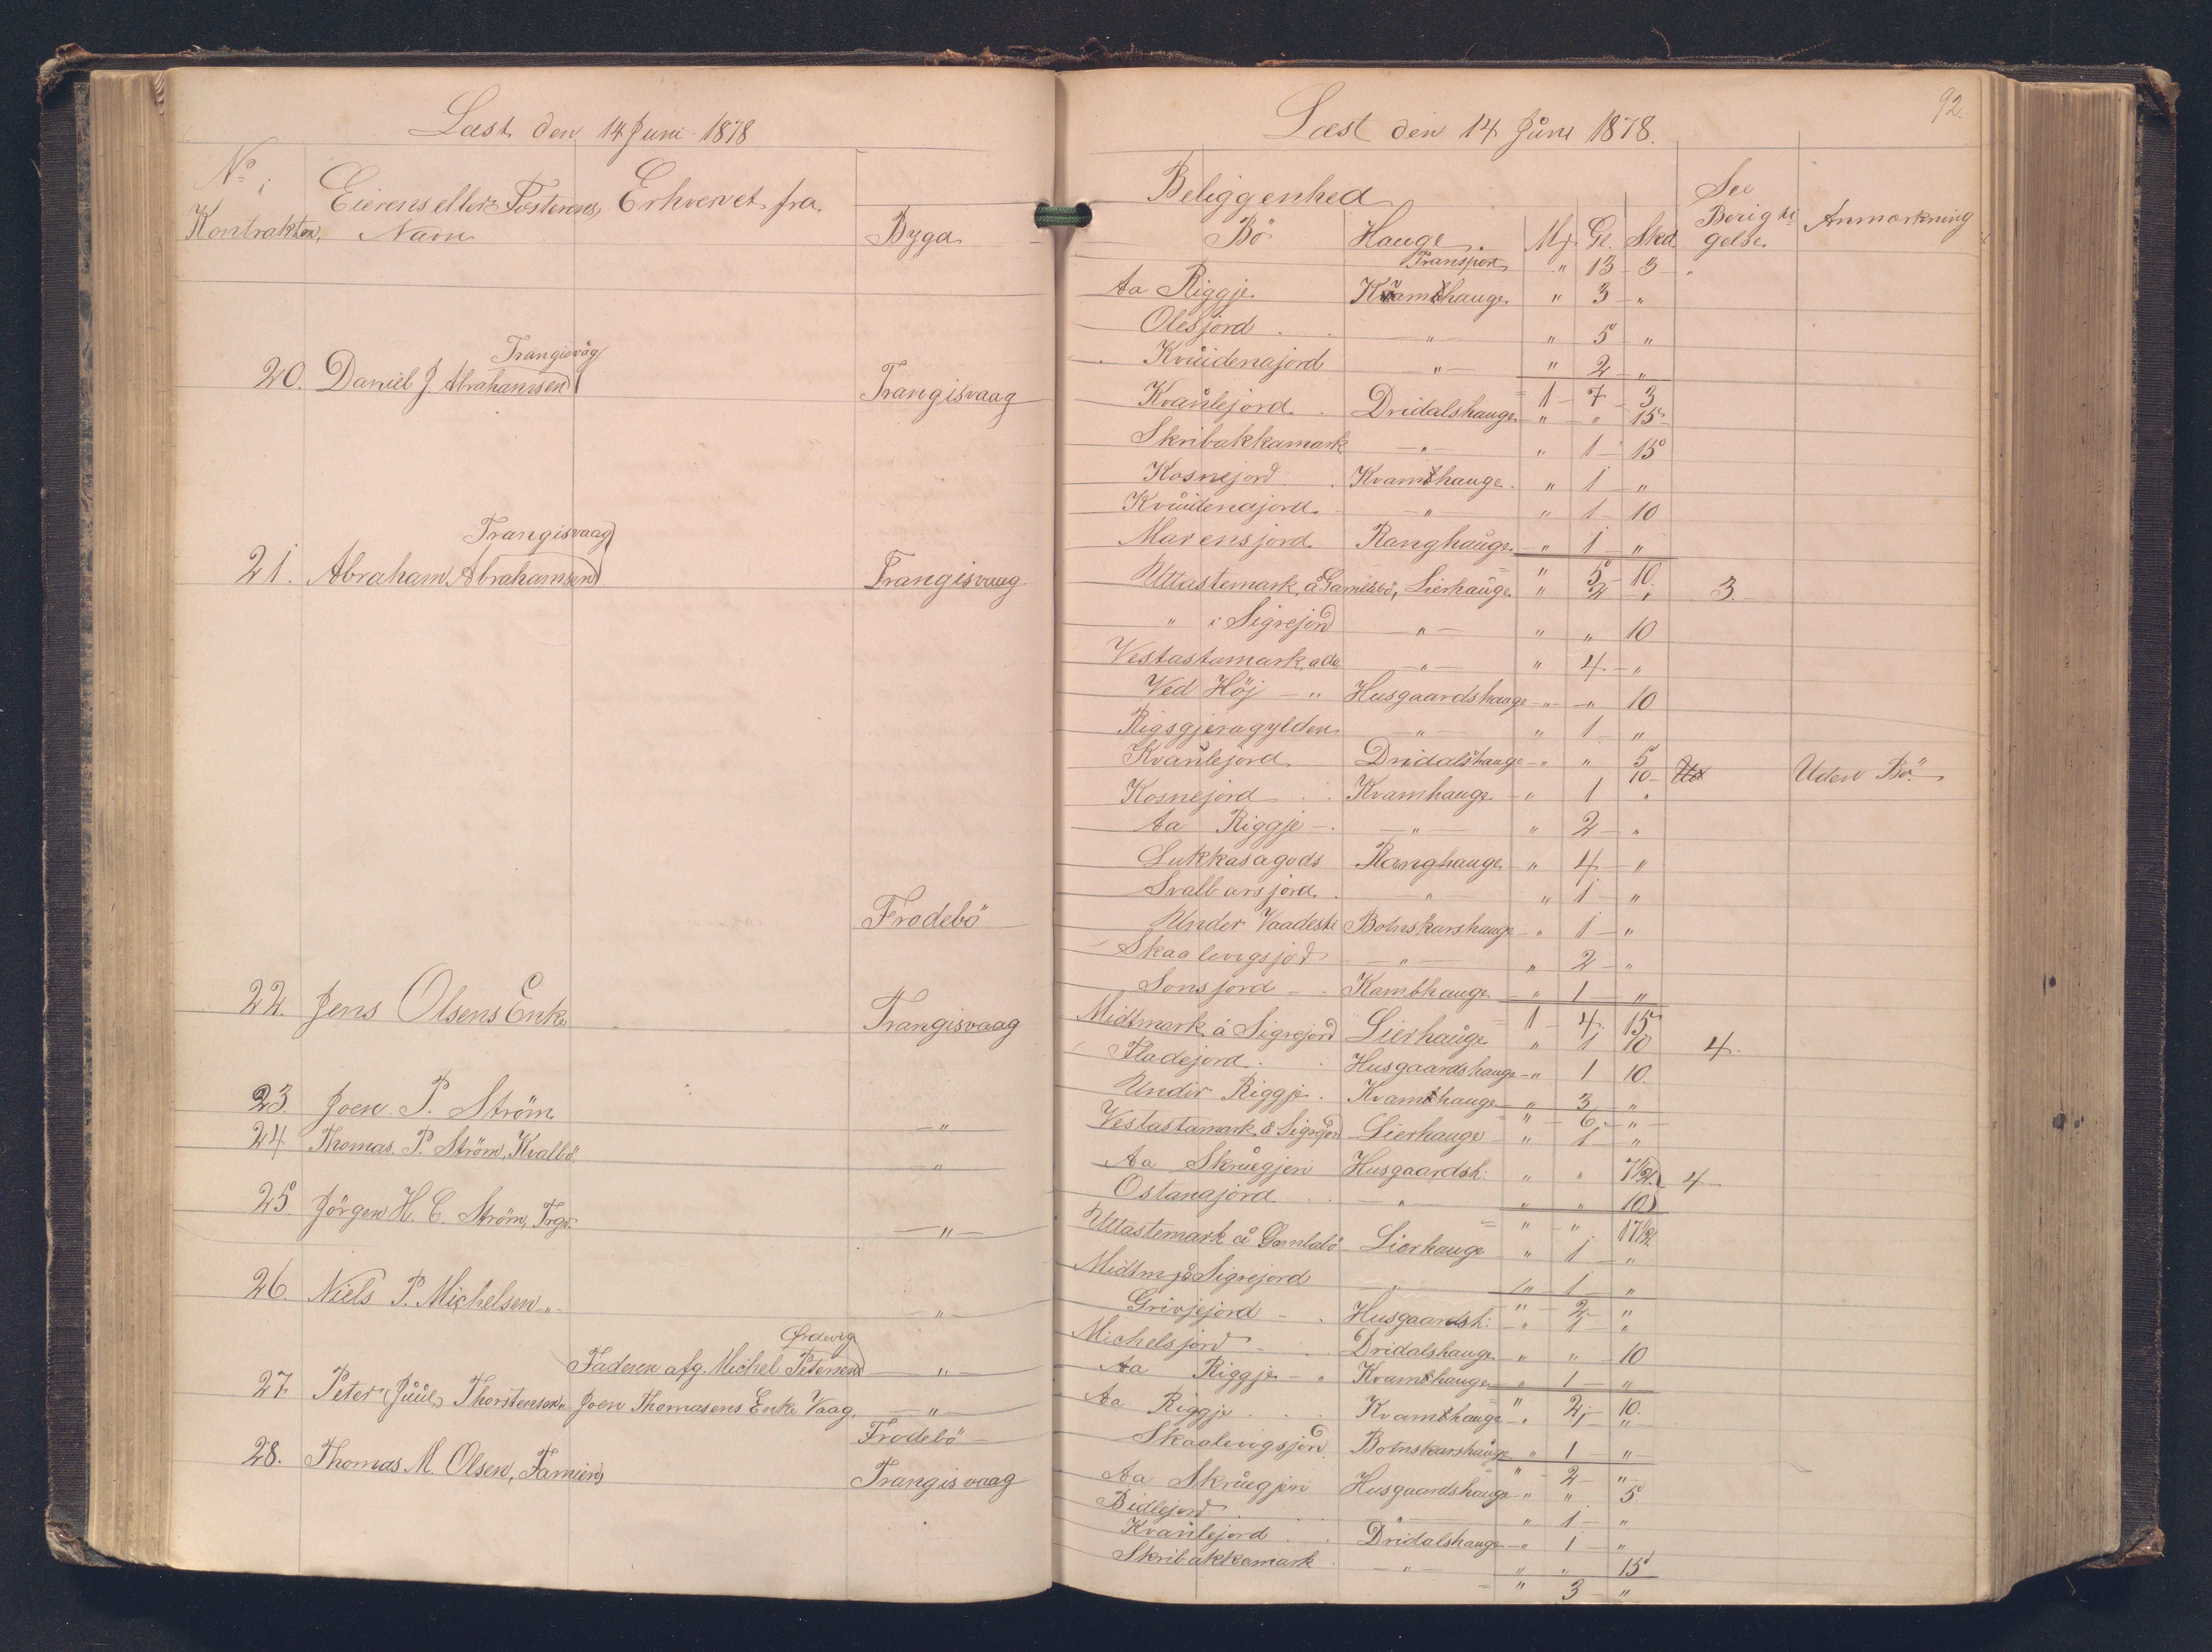 Læst den 14 Juni 1878
No i Kontrakten, Eierens eller Fæsterens Navn Erhvervet fra Bygd
20. Daniel J. Abrahamsen Trangisvåg Trangisvaag
21. Abraham Abrahamsen Trangisvaag Trangisvaag
Frodebö
22. Jens Olsens Enke Trangisvaag
23. Joen P. Ström — " —
24 Thomas P. Ström, Kvalbö — " —
25 Jörgen H. C. Ström, Trgv. — " —
26. Niels P. Michelsen " — " —
27 Peter (Juul) Thorstensen " Faderen afg. Michel Petersen Ørdevig — " —
Joen Thomasens Enke Vaag, — " —
Frodebö
28. Thomas M. Olsen, Famien Trangisvaag
92.
Læst den 14 Juni 1878.
Beliggenhed
Bö Hauge. Mj. Gl. Skd See Berigtigelse Anmærkning
Transport " 13 3
Aa Riggje Kvamhauge " 3 "
Olesjord . . — " — " 5 "
Kvuidenajord — " — " 2 "
1 7 3
Kvanlejord . Dridalshauge " " 15
Skribakkamark — " — " 1 15
Kosnejord . . Kvamhauge . " 1 "
Kvuidenajord — " — " 1 10
Marensjord Ranghauge " 1 "
" 5 10.
Uttastemark, å Gamlabö, Lierhauge " 2 " 3.
" i Sigrejord — " — " " 10
Vestastamark, ada — " — " 4 "
Ved Höj — " Husgaardshauge " " 10
Rigsgjeragylden — " — " 1 "
Kvanlejord Dridalshauge " " 5
10 Uden Bö.
Kosnejord . . Kvamhauge " 1 "
Aa Riggje — . — " — " 2 "
Lukkasagods Ranghauge " 4 "
Svalbarsjord . — " — " 1 "
Under Vaadeste Botnskarshauge " 1 "
Skaalevigsjord — " — " 2 "
Sonsjord — . Kambhauge " 1 "
1 4 15
Midtmark å Sigrejord Lierhauge " 1 10 4.
Fladejord . . Husgaardshauge " 1 10.
Undir Riggje . Kvamhauge " 3 "
" 6 "
Vestastamark å Sigrejord Lierhauge " 1 "
Aa Skruegjeri Husgaardsh: " " 7½ 4
Ostanajord . . — " — " " 10
" " 17½
Uttastemark å Gamlabö Lierhauge " 1 "
Midtm på Sigrejord " " 1 "
" 2 "
Grivjejord — . Husgaardsh: " 1 "
Michelsjord — . Dridalshauge " " 10
Aa Riggje — " Kvamhauge " 1 "
" 2 10.
Aa Riggje . . . Kvamhauge " 1 "
Skaalevigsjord Botnskarshauge " 1 "
" 2 "
Aa Skruegjeri Husgaardshauge " " 5.
Bidlejord . . . " " 1 "
Kvanlejord . . Dridalshauge " 1 "
Skribakkamark . — " — " " 15
" 3 "